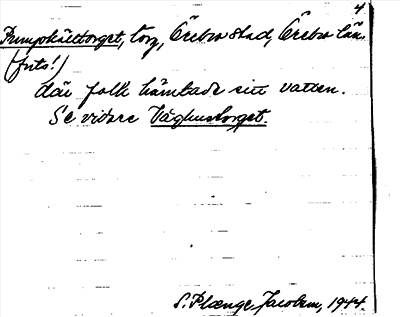 4
Pumpkälltorget, torg, Örebro stad, Örebro län.
(fits!)
där folk hämtade sitt vatten.
Se vidare Våghustorget.
S. Plænge Jacobson, 1944.